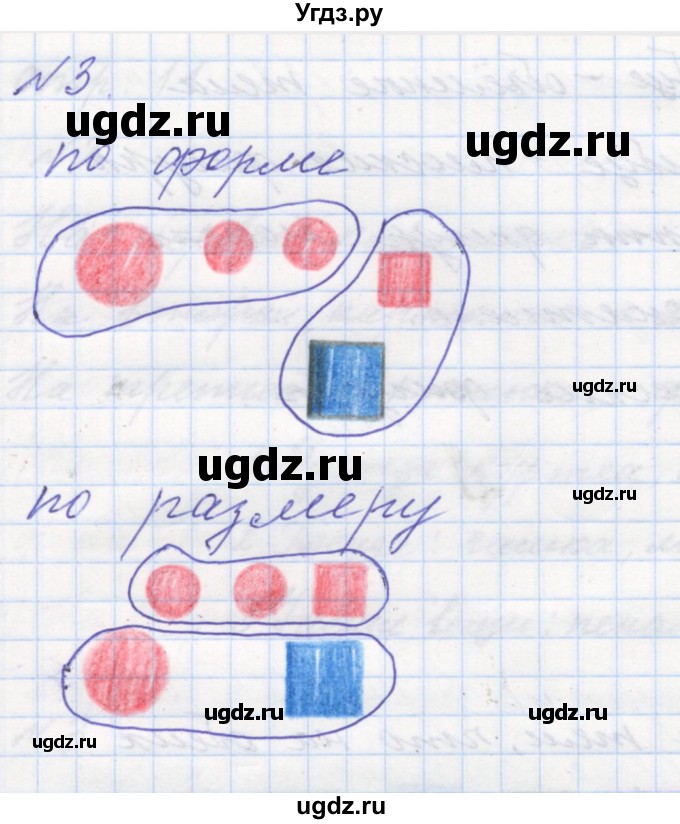 Угдз.ру
№3
ugdz.ru
ugdz.ru
по форме
ugdz.ru
ugdz.ru
ugdz.ru
по размеру
ugdz.ru
ugdz.ru
ugdz.ru
ugdz.ru